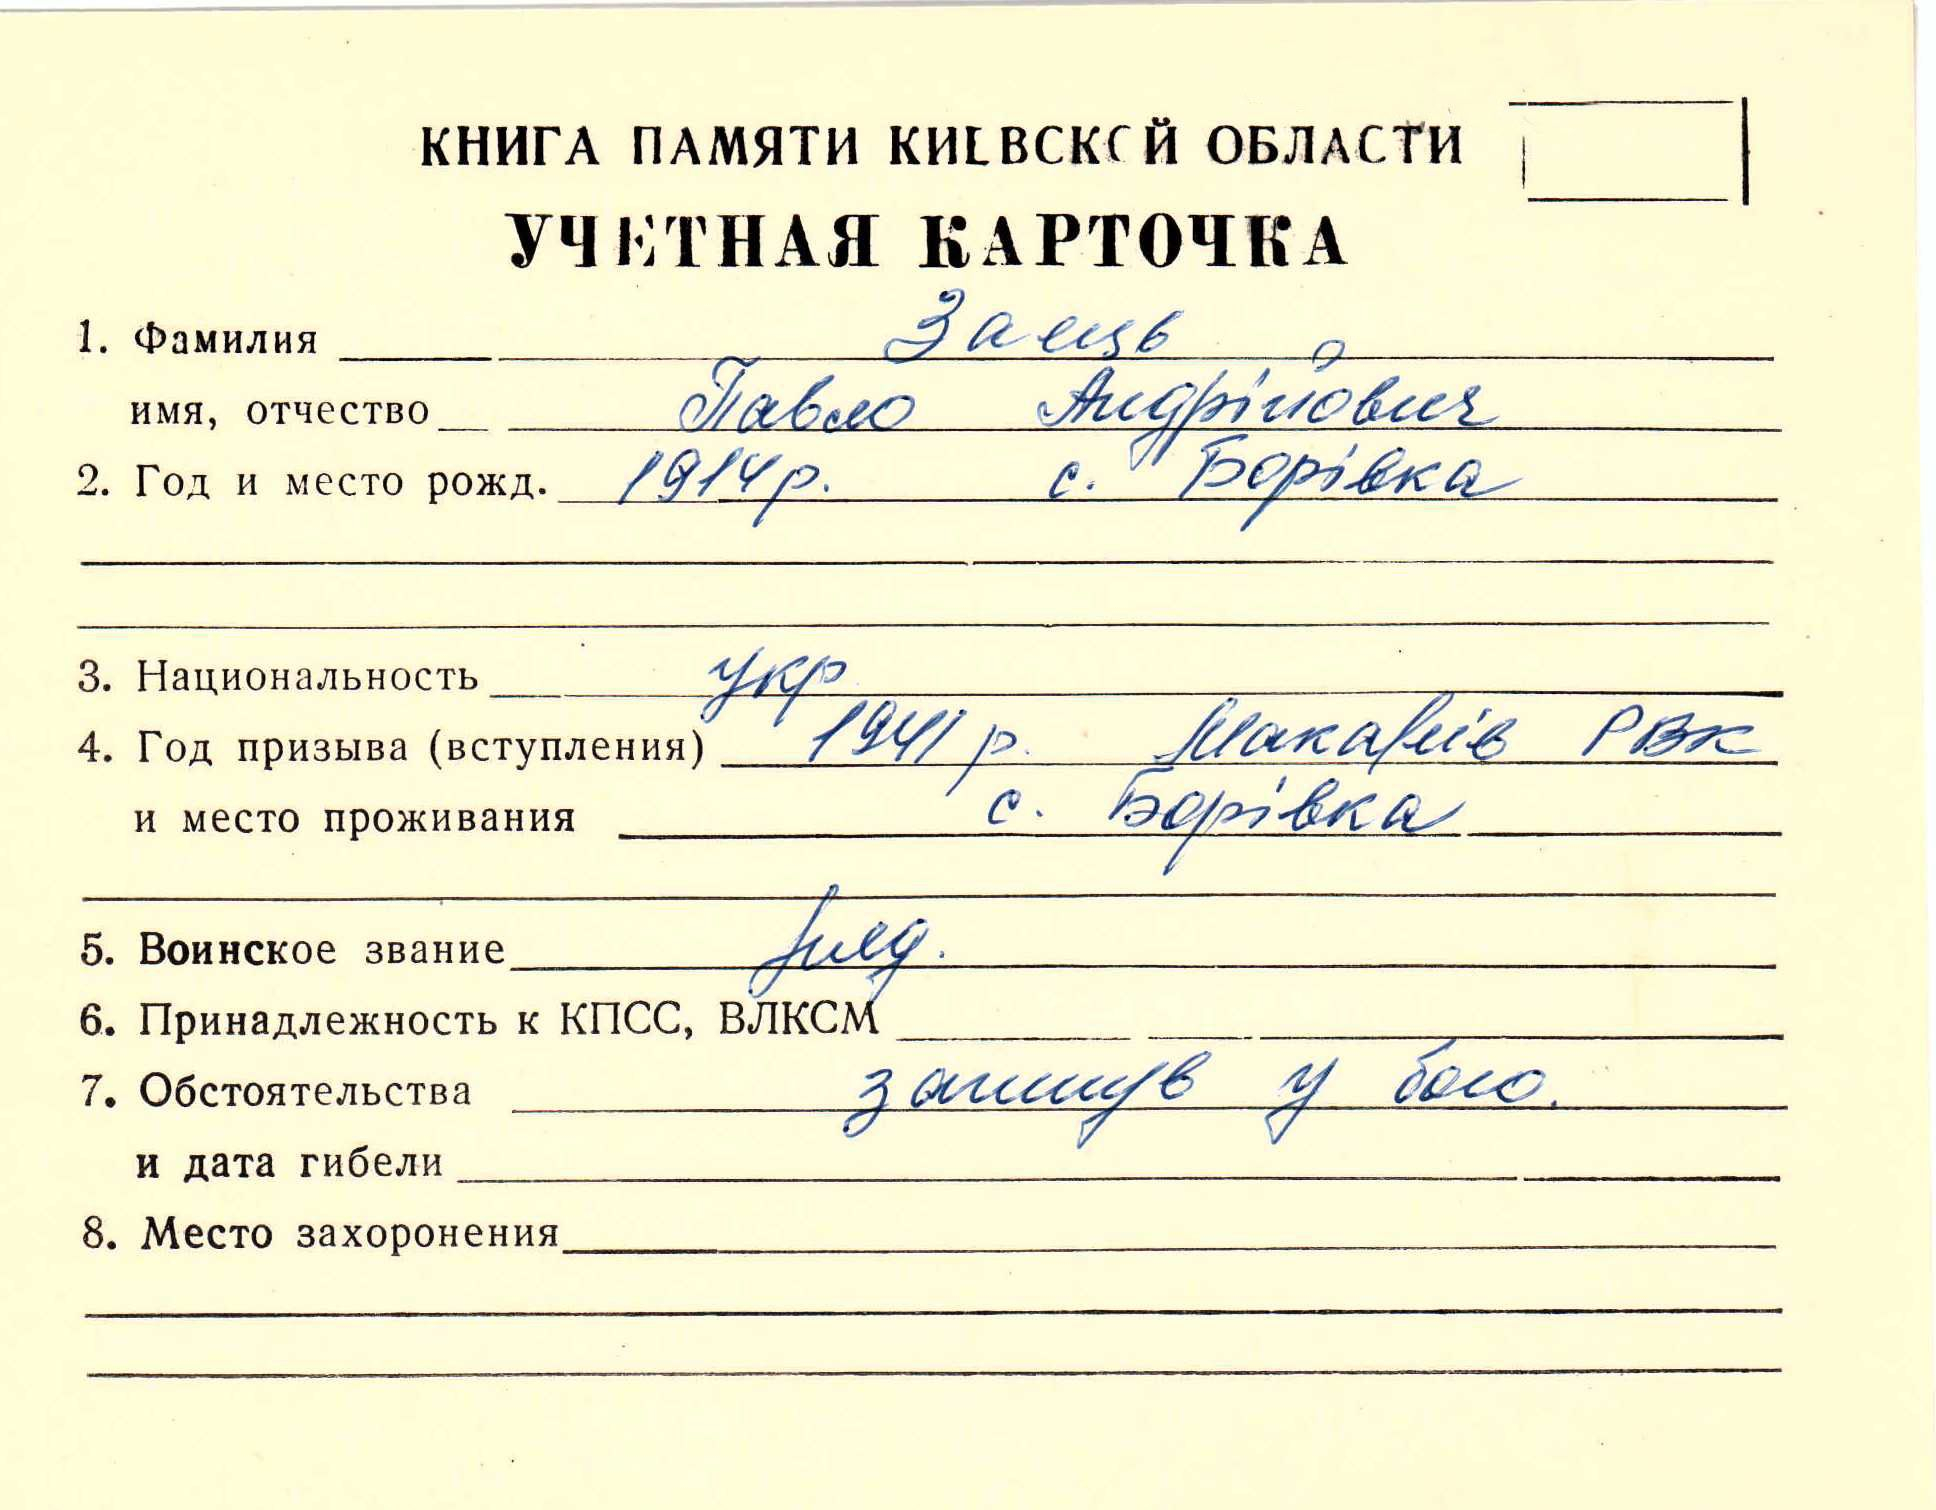 КНИГА ПАМЯТИ КИЕВСКОЙ ОБЛАСТИ
УЧЕТНАЯ КАРТОЧКА
1. Фамилия Заєць
имя, отчество Павло Андрійович
2. Год и место рожд. 1914 р. с. Борівка
3. Национальность укр
4. Год призыва (вступления) 1941 р. Макарів РВК
и место проживания с. Борівка
5. Воинское звание
6. Принадлежность к КПСС, ВЛКСМ
7. Обстоятельства загинув у бою.
и дата гибели
8. Место захоронения